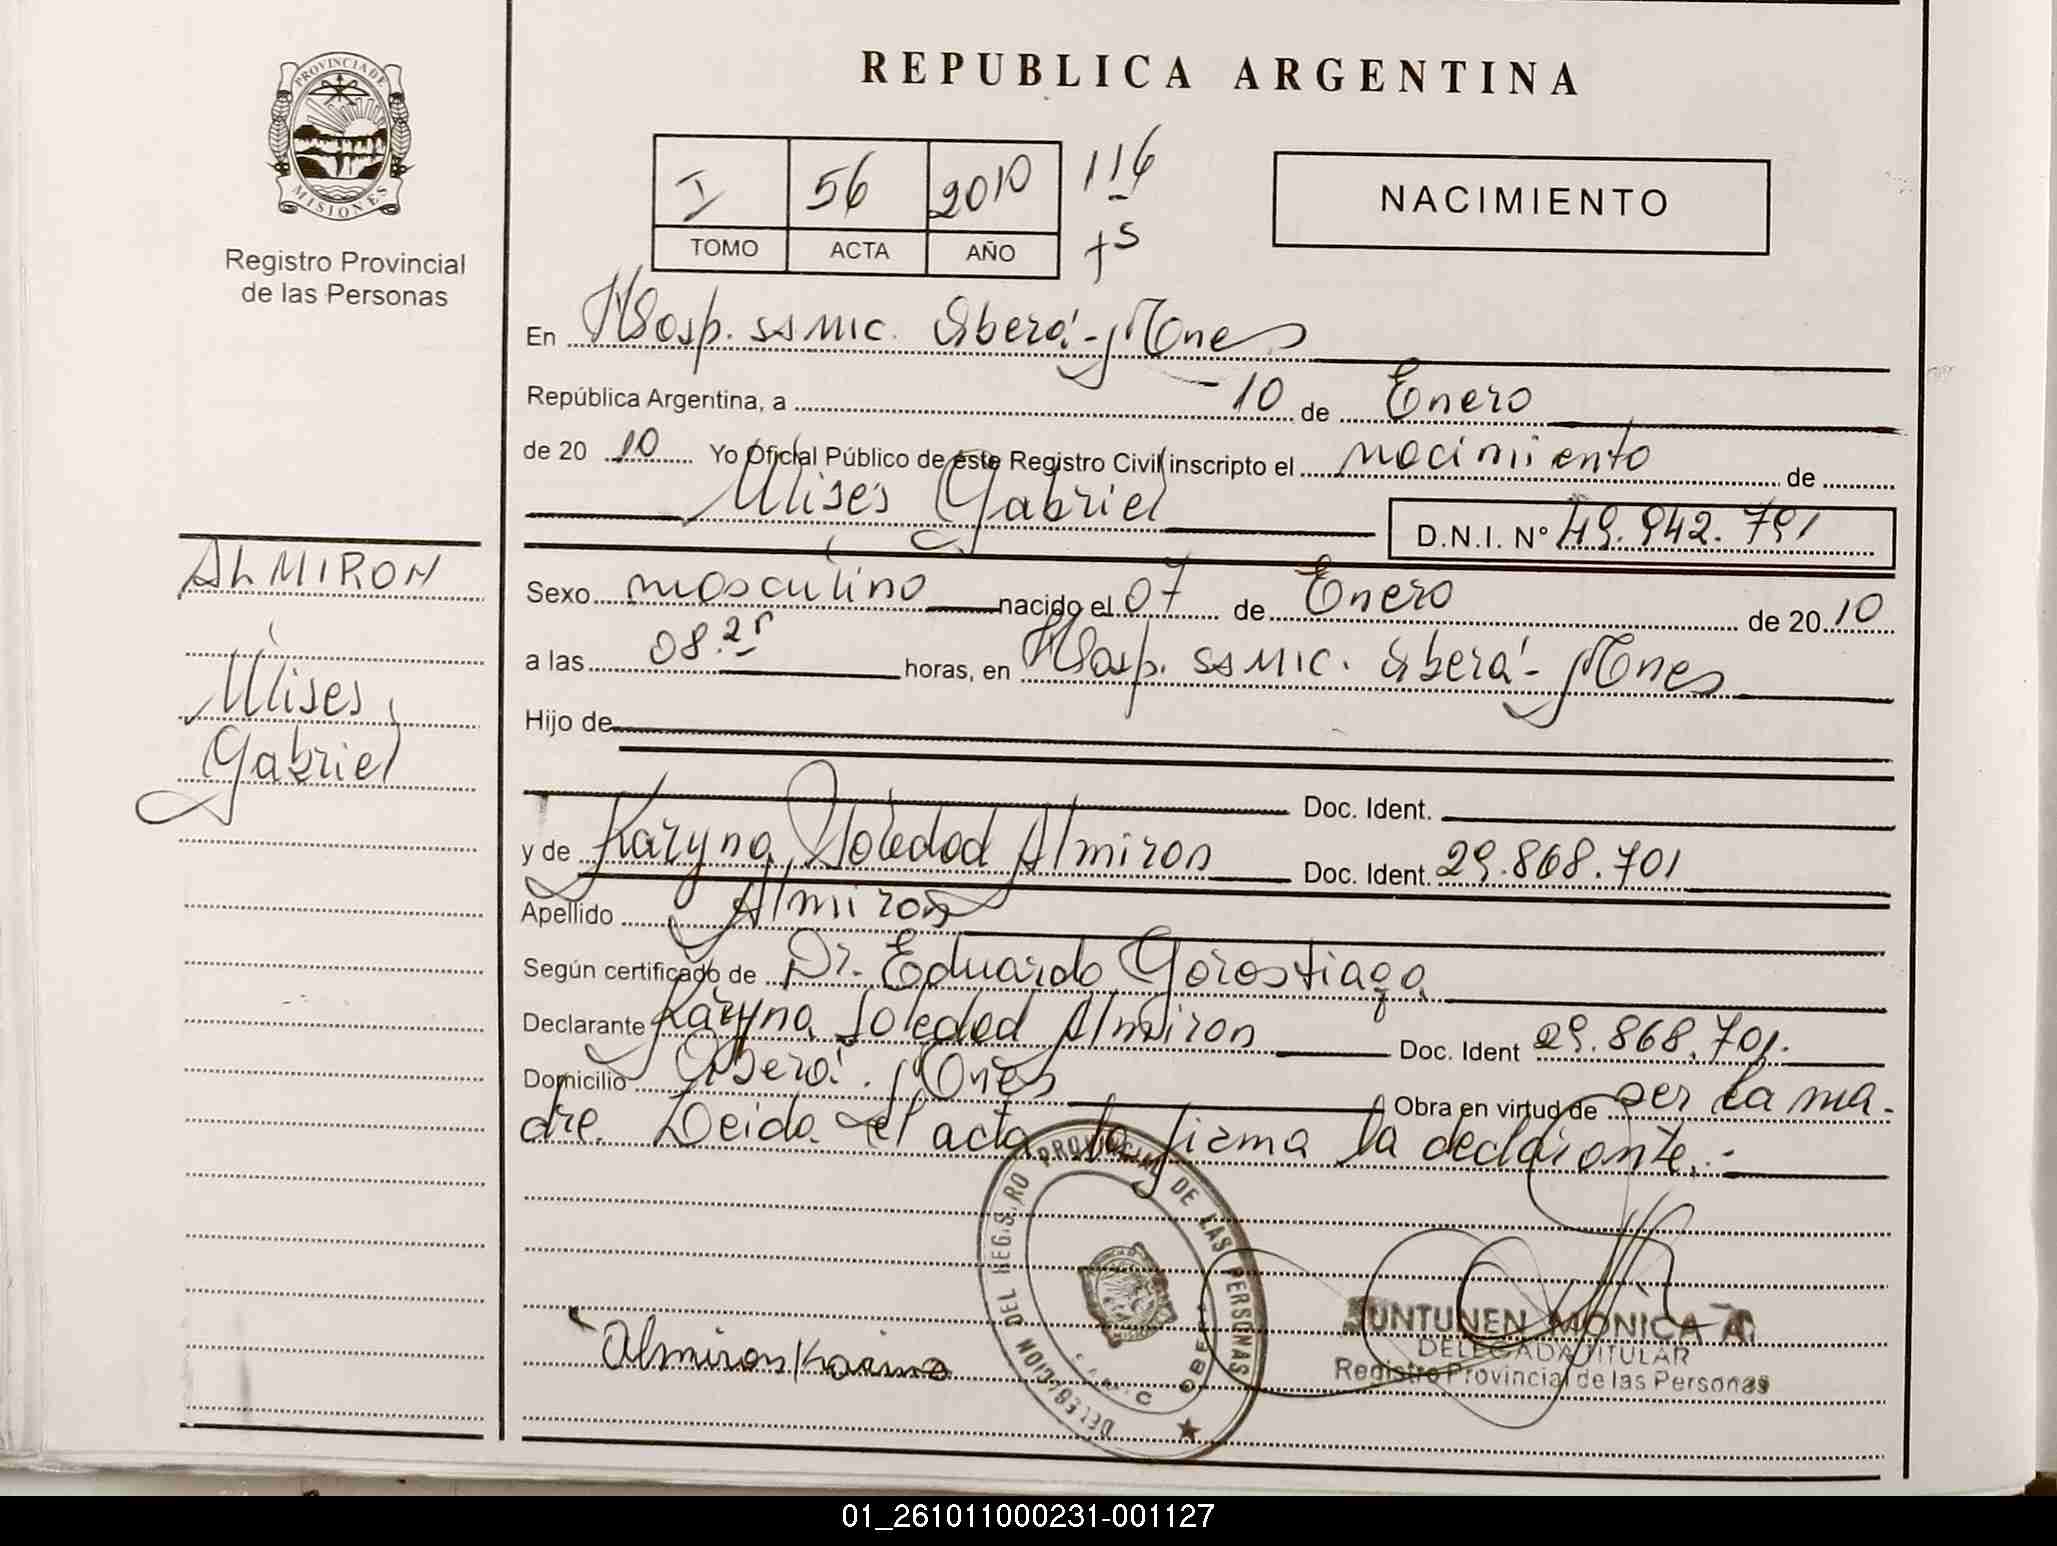 PROVINCIA DE
MISIONES
Registro Provincial
de las Personas
ALMIRON
Ulises
Gabriel
REPUBLICA ARGENTINA
I 56 2010 116
TOMO ACTA AÑO fs
NACIMIENTO
En Hosp. SAMIC. Oberá-Mnes
República Argentina, a 10 de Enero
de 20 10 Yo Oficial Público de éste Registro Civil inscripto el nacimiento de
Ulises Gabriel D.N.I. Nº 49.942.791
Sexo masculino nacido el 07 de Enero de 20 10
a las 08.25 horas, en Hosp. SAMIC. Oberá-Mnes
Hijo de
Doc. Ident.
y de Karyna Soledad Almiron Doc. Ident. 29.868.701
Apellido Almiron
Según certificado de Dr. Eduardo Gorostiaga
Declarante Karyna Soledad Almiron Doc. Ident 29.868.701.
Domicilio Oberá. Mnes Obra en virtud de ser la ma-
dre. Leida el acta la firma la declarante.-
DELEGACION DEL REGISTRO PROVINCIAL DE LAS PERSONAS
OBERA
Almiron Karina
SUNTUNEN MONICA A.
DELEGADA TITULAR
Registro Provincial de las Personas
01_261011000231-001127